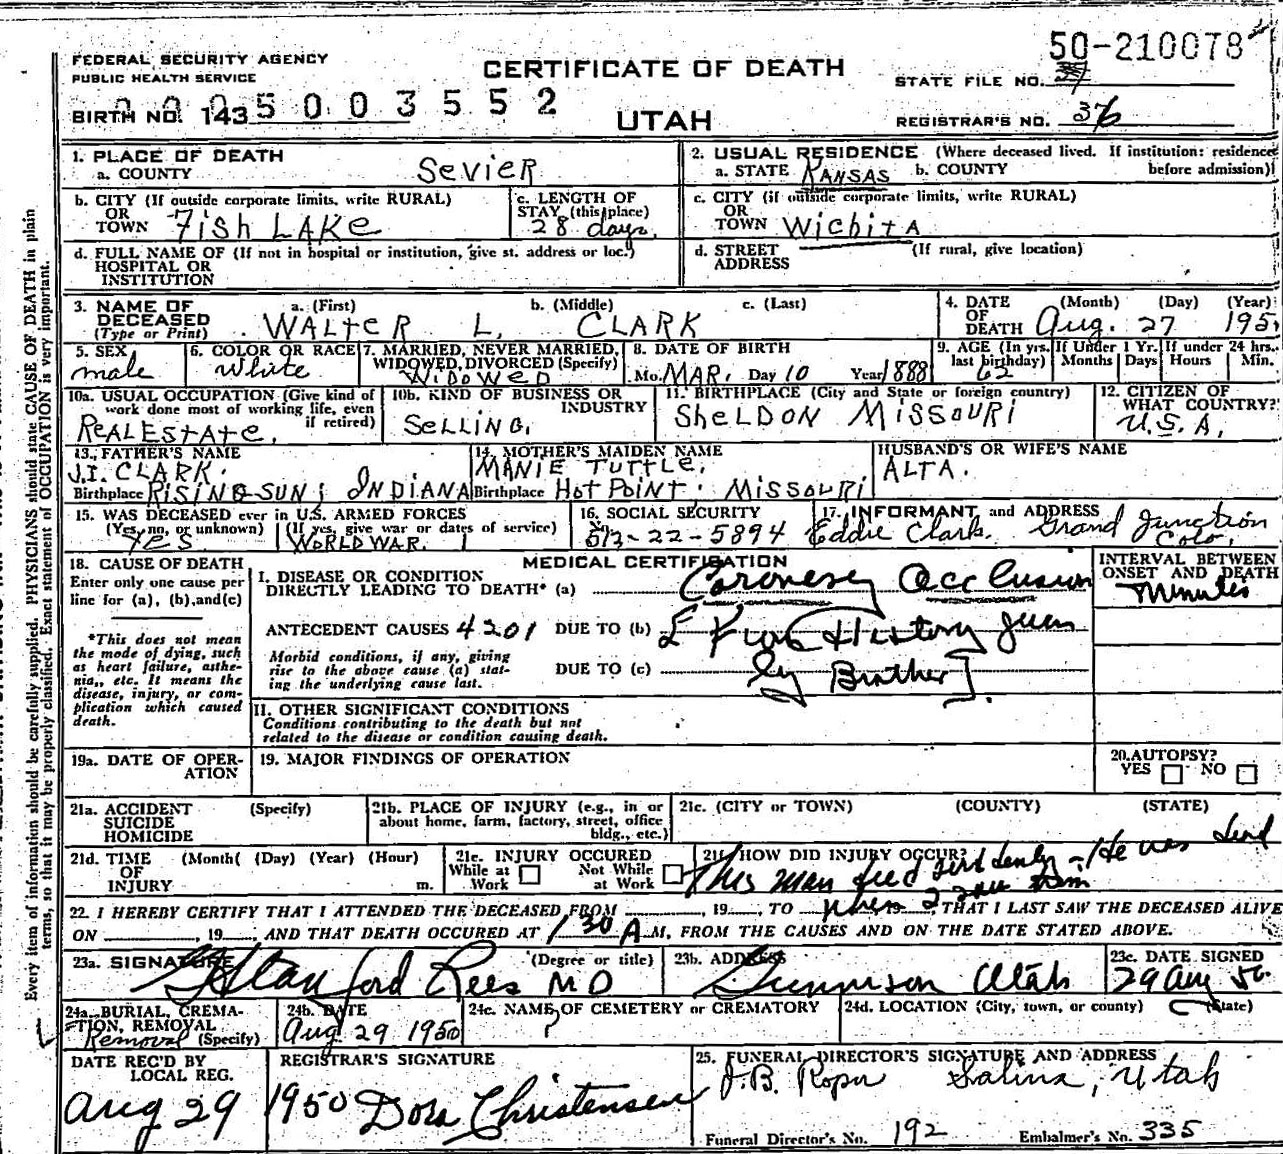 50-210078
FEDERAL SECURITY AGENCY
PUBLIC HEALTH SERVICE
CERTIFICATE OF DEATH
STATE FILE NO.
0005003552
BIRTH NO. 143
UTAH
REGISTRAR'S NO. 376
1. PLACE OF DEATH
a. COUNTY SEVIER
2. USUAL RESIDENCE (Where deceased lived. If institution: residence before admission)
a. STATE KANSAS b. COUNTY
b. CITY (If outside corporate limits, write RURAL)
OR
TOWN FISH LAKE
c. LENGTH OF
STAY (this place)
28 days.
c. CITY (if outside corporate limits, write RURAL)
OR
TOWN WICHITA
d. FULL NAME OF (If not in hospital or institution, give st. address or loc.)
HOSPITAL OR
INSTITUTION
d. STREET (If rural, give location)
ADDRESS
3. NAME OF
DECEASED
(Type or Print)
a. (First) b. (Middle) c. (Last)
WALTER L. CLARK
4. DATE (Month) (Day) (Year)
OF
DEATH Aug. 27 195
5. SEX
male
6. COLOR OR RACE
White
7. MARRIED, NEVER MARRIED,
WIDOWED, DIVORCED (Specify)
WIDOWED
8. DATE OF BIRTH
Mo. MAR. Day 10 Year 1888
9. AGE (In yrs. last birthday)
62
If Under 1 Yr.
Months Days
If under 24 hrs.
Hours Min.
10a. USUAL OCCUPATION (Give kind of
work done most of working life, even
if retired)
REAL ESTATE.
10b. KIND OF BUSINESS OR
INDUSTRY
SELLING.
11. BIRTHPLACE (City and State or foreign country)
SHELDON MISSOURI
12. CITIZEN OF
WHAT COUNTRY?
U.S.A.
13. FATHER'S NAME
J.I. CLARK.
Birthplace RISING SUN; INDIANA
14. MOTHER'S MAIDEN NAME
MANIE TUTTLE.
Birthplace HOT POINT; MISSOURI
HUSBAND'S OR WIFE'S NAME
ALTA.
15. WAS DECEASED ever in U.S. ARMED FORCES
(Yes, no, or unknown) (If yes, give war or dates of service)
YES WORLD WAR. I
16. SOCIAL SECURITY
No.
513-22-5894
17. INFORMANT and ADDRESS
Eddie Clark. Grand Junction
Colo.
18. CAUSE OF DEATH
Enter only one cause per
line for (a), (b), and (c)
*This does not mean
the mode of dying, such
as heart failure, asthe-
nia, etc. It means the
disease, injury, or com-
plication which caused
death.
MEDICAL CERTIFICATION
I. DISEASE OR CONDITION
DIRECTLY LEADING TO DEATH* (a) Coronary Occlusion
ANTECEDENT CAUSES 4201 DUE TO (b) [From History given
Morbid conditions, if any, giving
rise to the above cause (a) stat-
ing the underlying cause last.
DUE TO (c) by Brother].
INTERVAL BETWEEN
ONSET AND DEATH
Minutes
II. OTHER SIGNIFICANT CONDITIONS
Conditions contributing to the death but not
related to the disease or condition causing death.
19a. DATE OF OPER-
ATION
19. MAJOR FINDINGS OF OPERATION
20. AUTOPSY?
YES NO
21a. ACCIDENT (Specify)
SUICIDE
HOMICIDE
21b. PLACE OF INJURY (e.g., in or
about home, farm, factory, street, office
bldg., etc.)
21c. (CITY or TOWN) (COUNTY) (STATE)
21d. TIME (Month( (Day) (Year) (Hour)
OF
INJURY m.
21e. INJURY OCCURED
While at Work
Not While at Work
21f. HOW DID INJURY OCCUR?
This man died suddenly - He was dead
when I saw him
22. I HEREBY CERTIFY THAT I ATTENDED THE DECEASED FROM , 19 , TO 19 , THAT I LAST SAW THE DECEASED ALIVE
ON , 19 , AND THAT DEATH OCCURED AT 1 30 A M, FROM THE CAUSES AND ON THE DATE STATED ABOVE.
23a. SIGNATURE (Degree or title)
Stanford Rees MD
23b. ADDRESS
Gunnison Utah
23c. DATE SIGNED
29 Aug 50
24a. BURIAL, CREMA-
TION, REMOVAL
Removal (Specify)
24b. DATE
Aug 29 1950
24c. NAME OF CEMETERY or CREMATORY
?
24d. LOCATION (City, town, or county) (State)
DATE REC'D BY
LOCAL REG.
Aug 29 1950
REGISTRAR'S SIGNATURE
Dora Christensen
25. FUNERAL DIRECTOR'S SIGNATURE AND ADDRESS
J.B. Roper Salina, Utah
Funeral Director's No. 192 Embalmer's No. 335
Every item of information should be carefully supplied. PHYSICIANS should state CAUSE OF DEATH in plain
terms, so that it may be properly classified. Exact statement of OCCUPATION is very important.